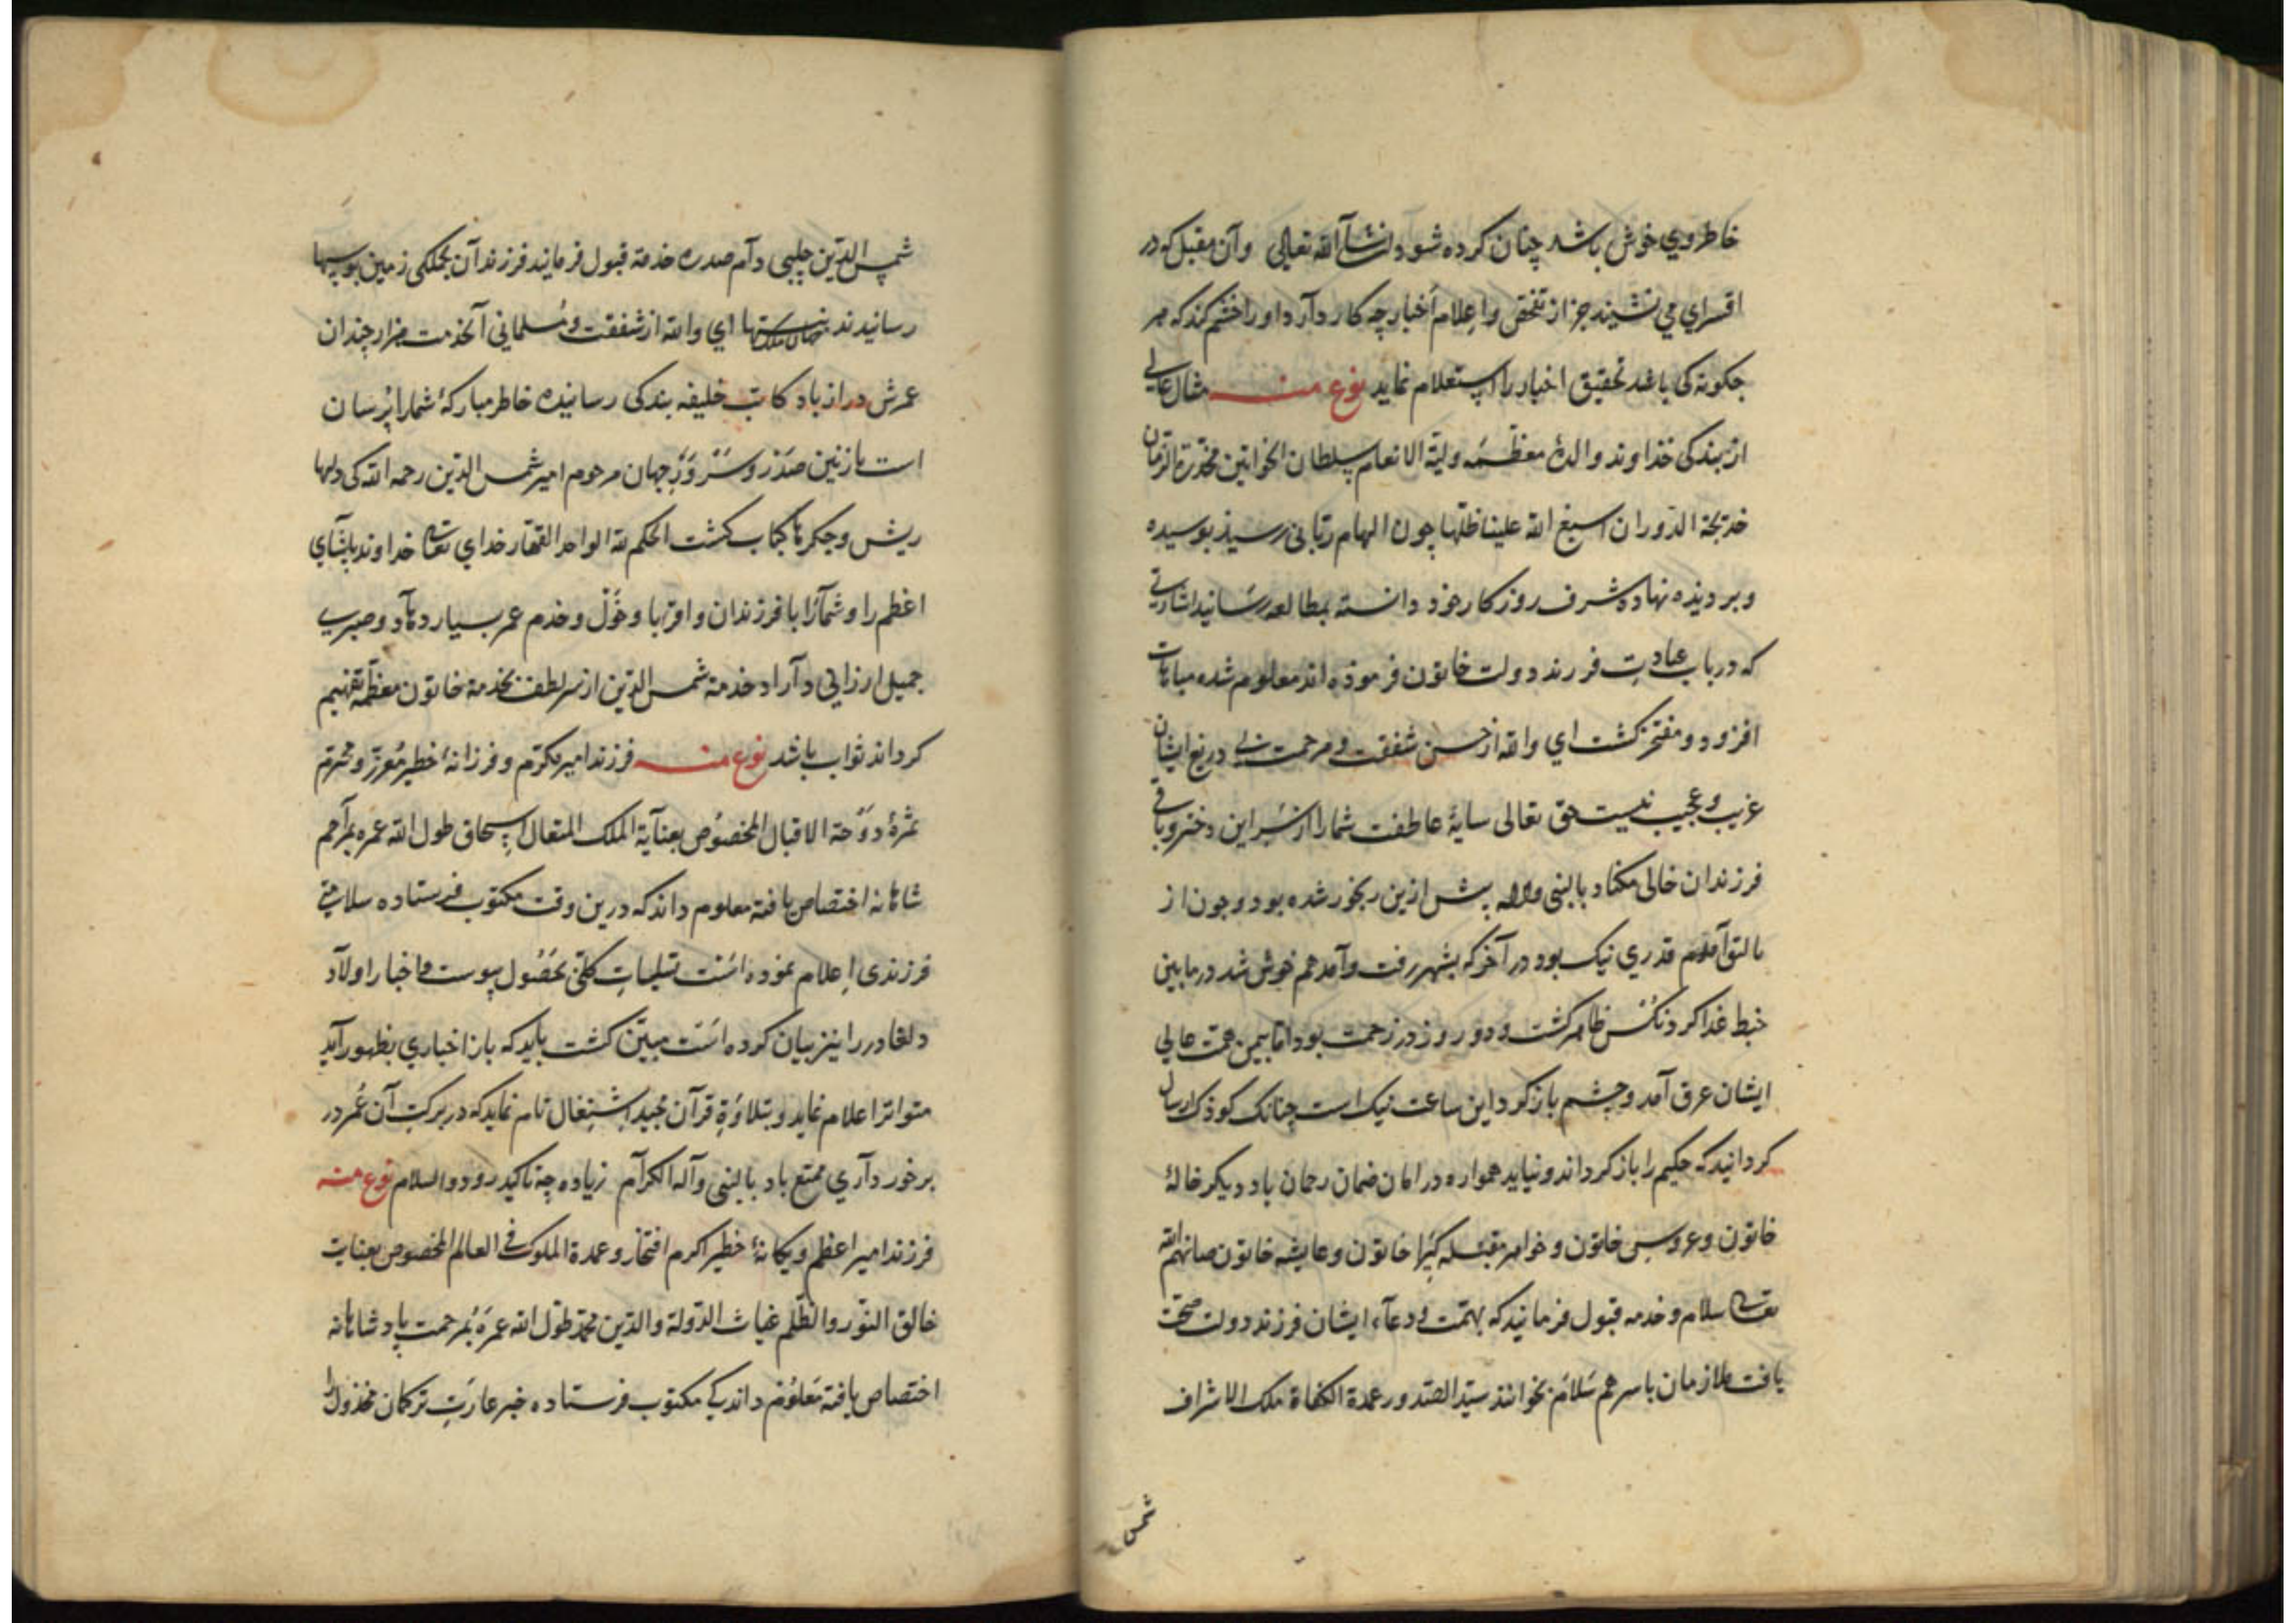 خاطر وی خوش باشد چنان کرده شود انشآالله تعالی وآن مقبل که در
اقسرای می نشیند جز از تفحص واعلام اخبار چه کار دارد او را خشم کند که هر
چکونه کی باشد تحقیق اخبار را استعلام نماید نوع منه مثال عالی
از بندکی خذاوند والدهٔ معظمه ولیة الانعام سلطان الخواتین مخدرة الزمان
خدیجة الدوران اسبغ الله علینا ظلها چون الهام ربانی رسیذ بوسیده
وبر دیذه نهاده شرف روزکار خود دانسته بمطالعه رسانید اشارتی
که در باب عیادت فرزند دولت خاتون فرموذه اند معلوم شده مباهات
افزود ومفتخر کشت ای والله از حسن شفقت ومرحمت بی دریغ ایشان
غریب وعجیب نیست حق تعالی سایهٔ عاطفت شما را از سر این دختر وباقی
فرزندان خالی مکناد بالنبی وآله پیش ازین رنجور شده بود وچون از
قدری نیک بود در آخر که بشهر رفت وآمد هم خوش شد در مابین
خبط غذا کرد نکس ظاهر کشت ودو روز در زحمت بود اما بیمن همت عالی
ایشان عرق آمد وچشم باز کرد این ساعت نیک است چنانک کوذک ارسال
کردانید که حکیم را باز کرداند ونیاید همواره در امان ضمان رحمان باد دیکر خالهٔ
خاتون وعروس خاتون وخواهر مقبله کبرا خاتون وعایشه خاتون صانهم الله
تعالی سلام وخدمه قبول فرمانید که بهمت ودعاء ایشان فرزند دولت صحت
یافت ملازمان باسرهم سلام بخوانند سید الصدور عمدة الکفاة ملک الاشراف
شمس
شمس الدین چلبی دام صدره خدمة قبول فرمایند فرزندان بجملکی زمین بوسیها
رسانیدند ای والله از شفقت ومسلمانی آنخدمت هزار چندان
عمرش دراز باد کاتب خلیفه بندکی رسانیده خاطر مبارکهٔ شما را پرسان
است نازنین صدر وسرور جهان مرحوم امیر شمس الدین رحمه الله کی دلها
ریش وجکرها کباب کشت الحکم لله الواحد القهار خدای تعالی خداوند پاشای
اعظم را وشما را با فرزندان واقربا وخول وخدم عمر بسیار دهاد وصبری
جمیل ارزانی داراد خدمة شمس الدین از سر لطف بخدمة خاتون معظمه تفهیم
کرداند ثواب باشد نوع منه فرزند امیر مکرم وفرزانهٔ خطیر معزز ومحترم
ثمرهٔ دوحة الاقبال المخصوص بعنآیة الملک المتعال اسحاق طول الله عمره بمراحم
شاهانه اختصاص یافته معلوم داند که درین وقت مکتوب فرستاده سلامتی
فرزندی اعلام نموده است تسلیات کلی بحصول پیوست واخبار اولاد
دلغادر را نیز بیان کرده است مبین کشت باید که باز اخباری بظهور آید
متواترا اعلام نماید وبتلاوة قرآن مجید اشتغال تام نماید که در برکت آن عمر در
برخورداری ممتع باد بالنبی وآله الکرام زیاده چه تاکید رود والسلام نوع منه
فرزند امیر اعظم ویکانهٔ خطیر اکرم افتخار وعمدة الملوک فی العالم المخصوص بعنایت
خالق النور والظلم غیاث الدولة والدین محمد طول الله عمره بمرحمت پادشاهانه
اختصاص یافته معلوم داند کی مکتوب فرستاده خبر عارت ترکمان مخذول را